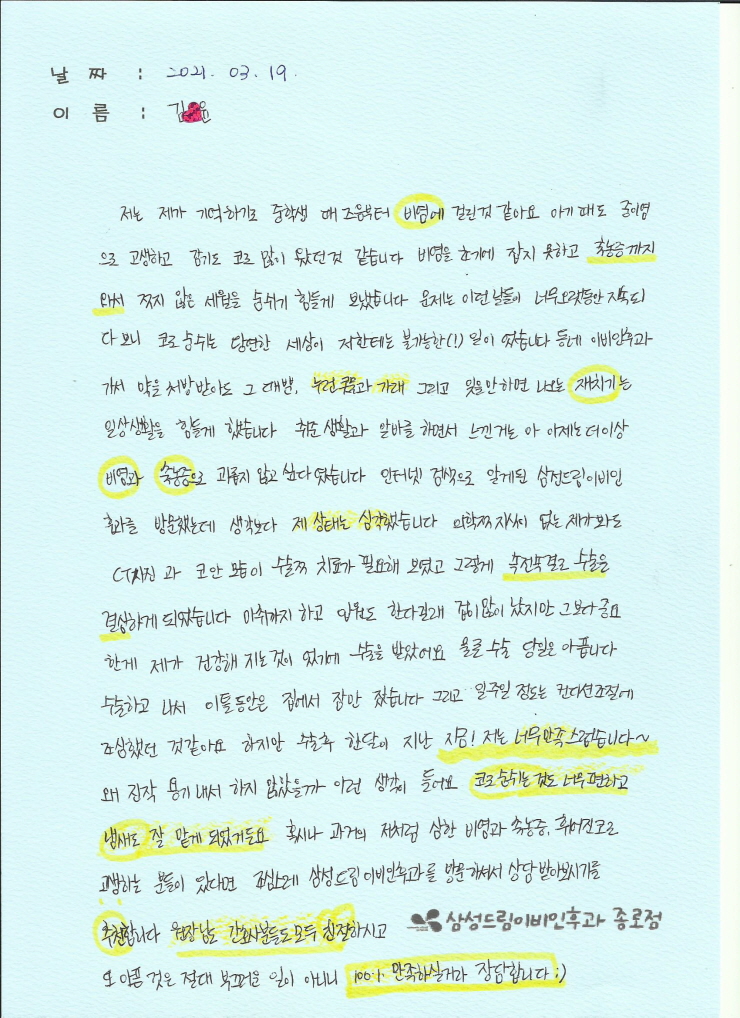 날 짜 : 2021. 03. 19.
이 름 : 김 윤
저는 제가 기억하기로 중학생 때 즈음부터 비염에 걸린것 같아요 아기 때도 중이염
으로 고생하고 감기도 코로 많이 왔던것 같습니다 비염을 초기에 잡지 못하고 축농증까지
와서 적지 않은 세월을 숨쉬기 힘들게 보냈습니다 문제는 이런 날들이 너무오랫동안 지속되
다 보니 코로 숨쉬는 당연한 세상이 저한테는 불가능한(!) 일이 었습니다 동네 이비인후과
가서 약을 처방 받아도 그 때뿐, 누런 콧물과 가래 그리고 잊을만 하면 나오는 재치기는
일상생활을 힘들게 했습니다 취준 생활과 알바를 하면서 느낀거는 아 이제는 더이상
비염과 축농증으로 괴롭지 않고 싶다 였습니다 인터넷 검색으로 알게된 삼성드림이비인
후과를 방문했는데 생각보다 제 상태는 심각했습니다 의학적 지식이 없는 제가 봐도
CT사진 과 코안 모습이 수술적 치료가 필요해 보였고 그렇게 속전속결로 수술을
결심하게 되었습니다 마취까지 하고 입원도 한다길래 겁이 많이 났지만 그보다 중요
한게 제가 건강해 지는것이 었기에 수술을 받았어요 물론 수술 당일은 아픕니다
수술하고 나서 이틀동안은 집에서 잠만 잤습니다 그리고 일주일 정도는 컨디션조절에
조심했던 것같아요 하지만 수술후 한달이 지난 지금! 저는 너무만족스럽습니다~
왜 진작 용기 내서 하지 않았을까 이런 생각이 들어요 코로 숨쉬는 것도 너무 편하고
냄새도 잘 맡게 되었거든요 혹시나 과거의 저처럼 심한 비염과 축농증, 휘어진코로
고생하는 분들이 있다면 조심스레 삼성드림이비인후과를 방문하셔서 상담 받아보시기를
추천합니다 원장님도 간호사분들도 모두 친절하시고
삼성드림이비인후과 종로점
또 아픈 것은 절대 부끄러운 일이 아니니 100% 만족하실거라 장담합니다 :)